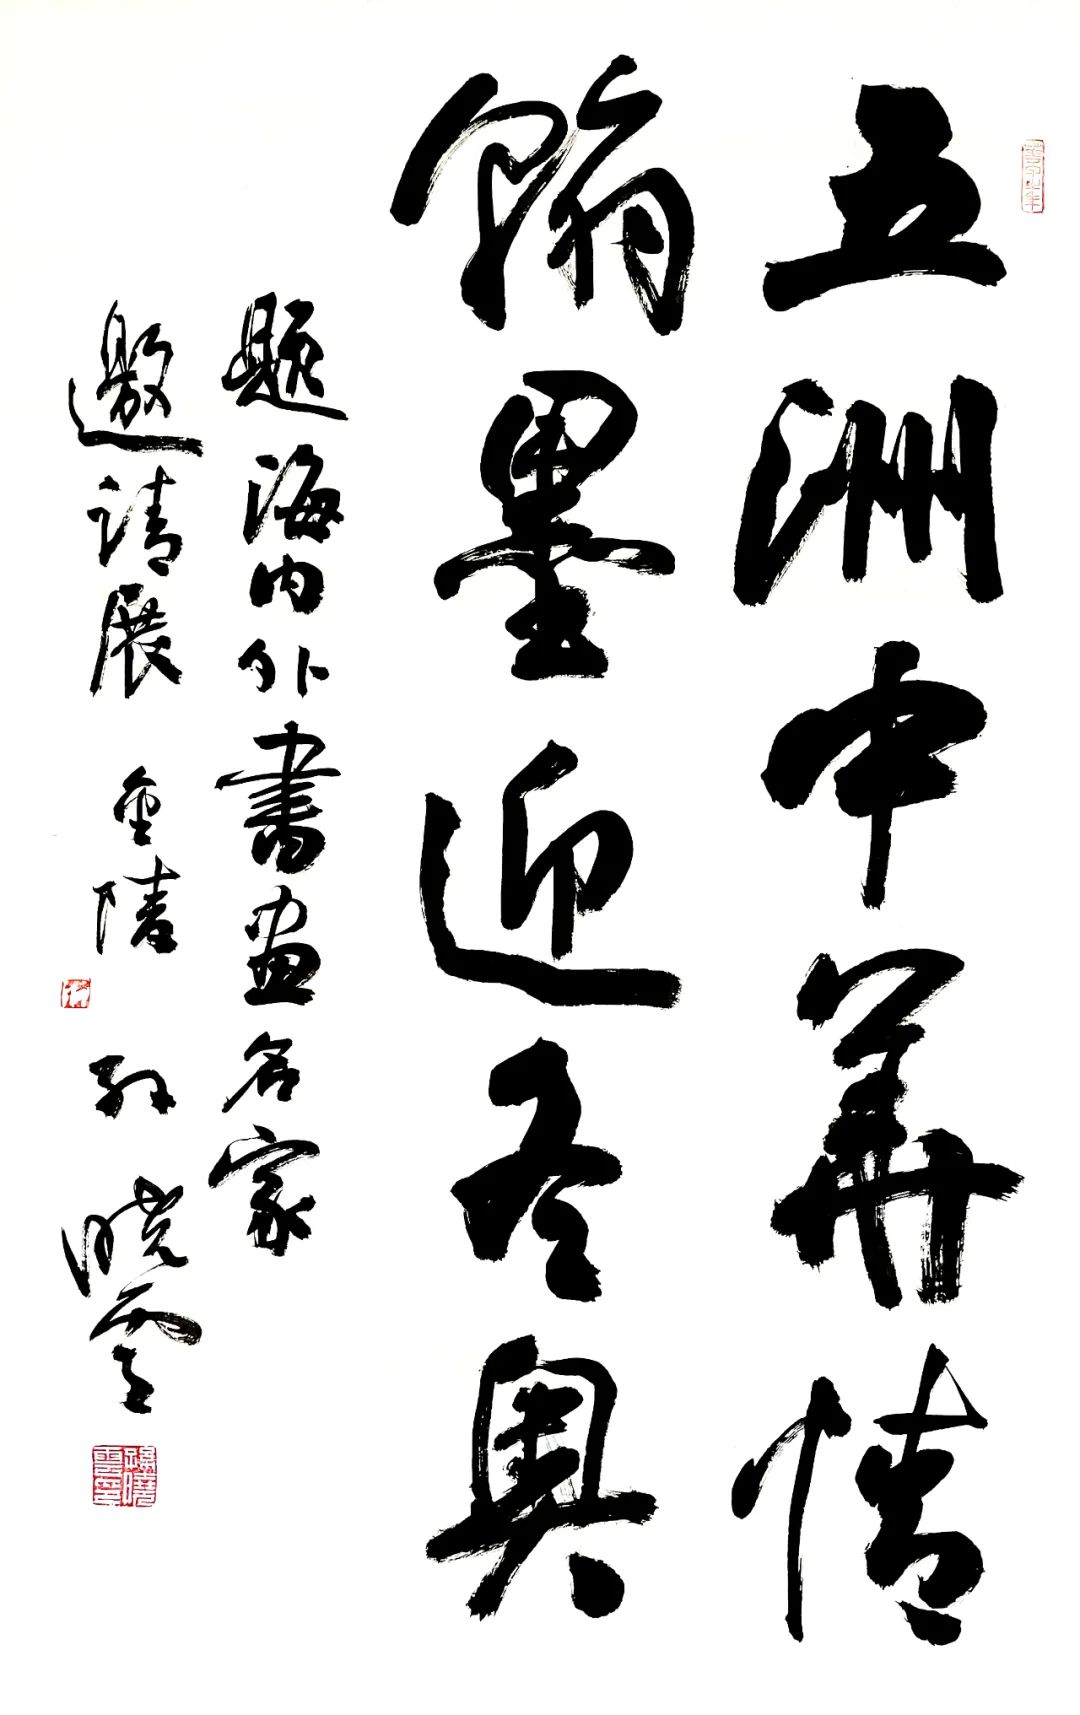 五洲中華情
翰墨迎冬奥
題海内外書画名家
邀請展 金陵 孫曉雲